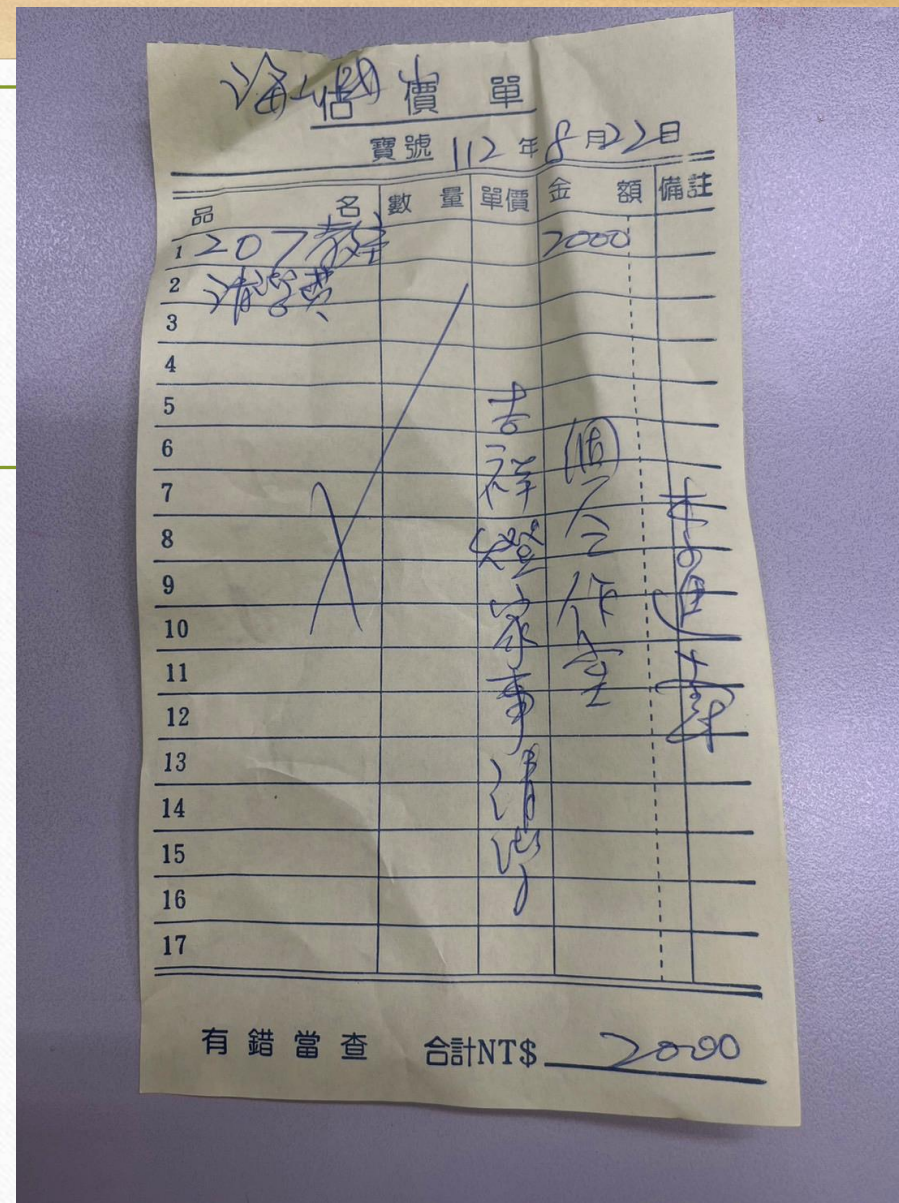 海山國小
估價單
寶號 112 年 8 月 22 日
品名 數量 單價 金額 備註
1 207教室 2000
2 清潔費
3
4
5
6
7
8
9
10
11
12
13
14
15
16
17
個人工作室
吉祥燈家事清潔
有錯當查 合計NT$ 2000